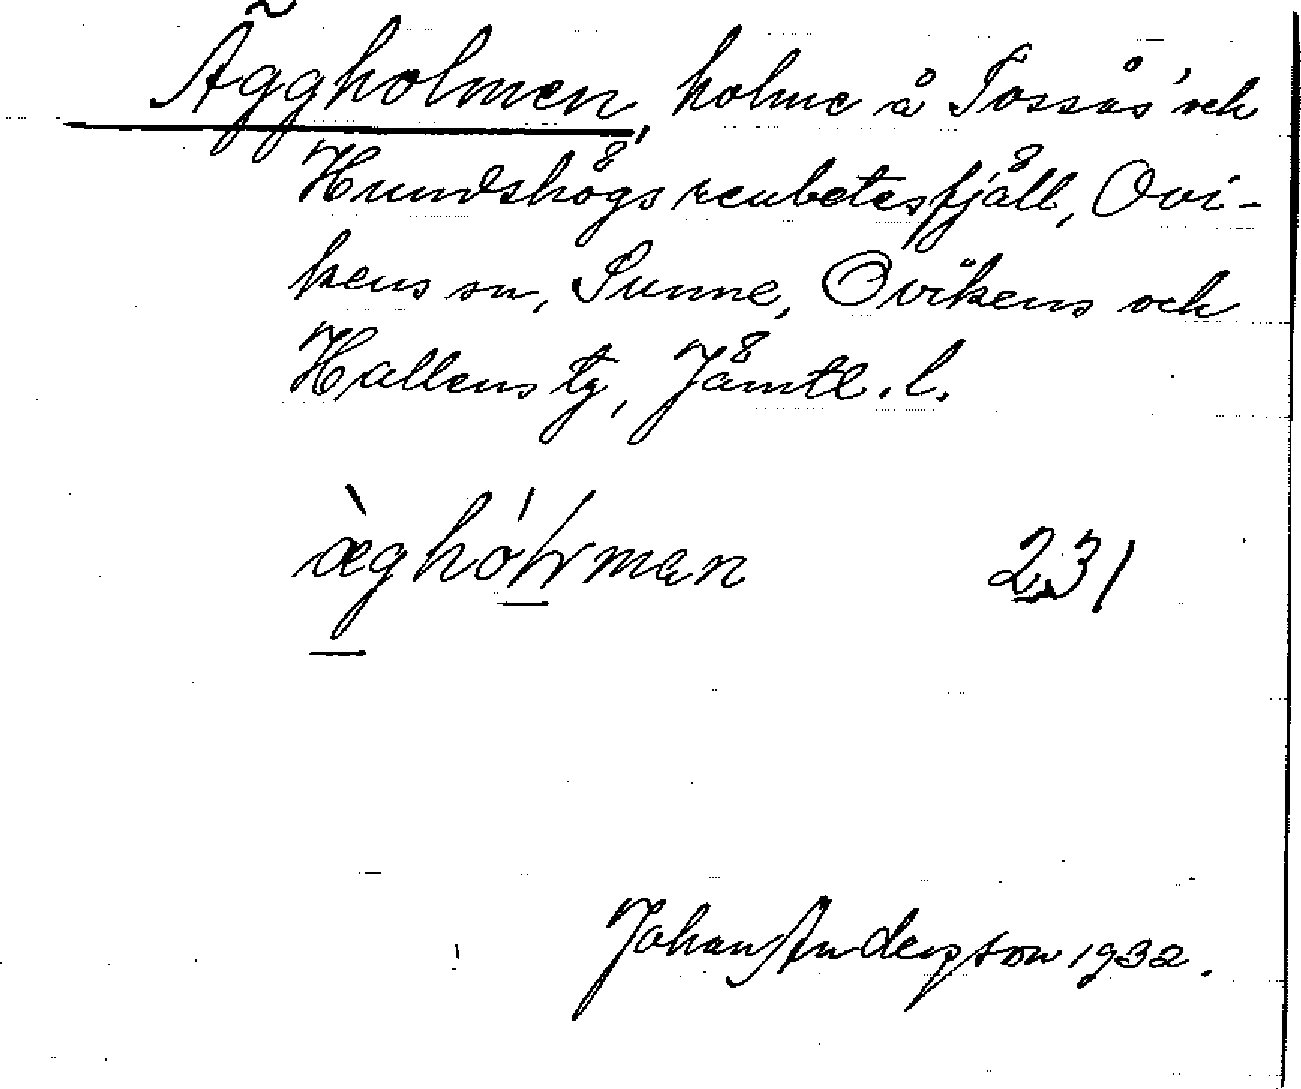 Äggholmen, holme å Tossås och
Hundshögs renbetesfjäll, Ovi-
kens sn, Sunne, Ovikens och
Hallens tg, Jämtl. l.
231
Johan Anderson 1932.